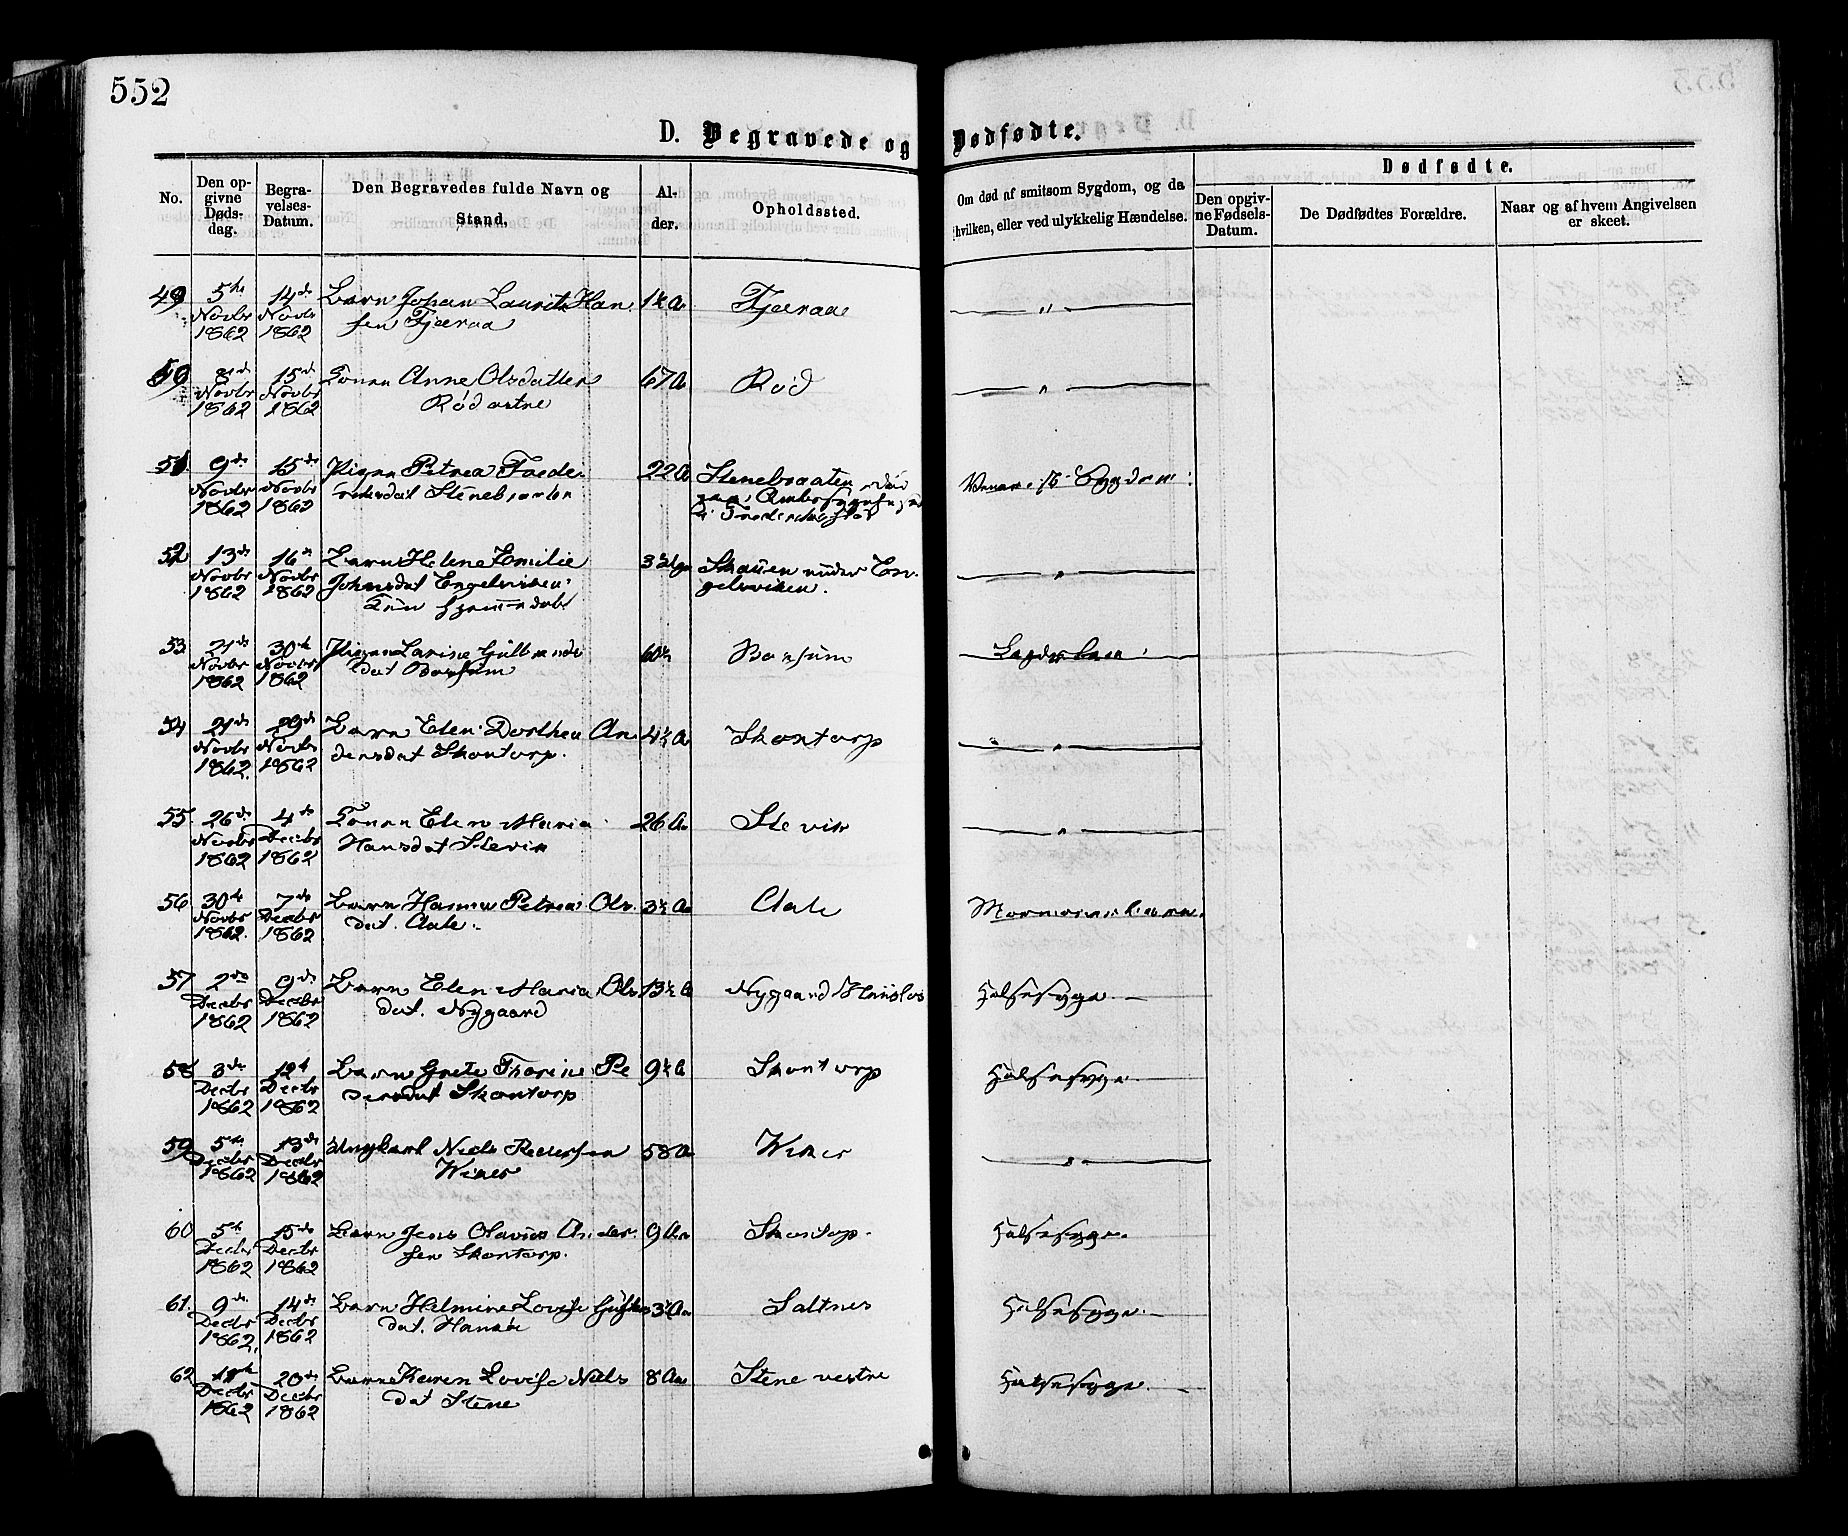 552
D. Begravede og Dødfødte.
No.
Den op-
givne
Døds-
dag.
Begra-
velses-
Datum.
Den Begravedes fulde Navn og
Stand.
Al-
der.
Opholdssted.
Om død af smitsom Sygdom, og da
hvilken, eller ved ulykkelig Hændelse.
Dødfødte.
Den opgiv-
ne Fødsels-
Datum.
De Dødfødtes Forældre.
Naar og af hvem Angivelsen
er skeet.
49 5te Novbr 1862 14de Novbr 1862 Barn Johan Laurits Han
sen Tjæraa 1½ A Tjæraa "
50 8de Novbr 1862 15de Novbr 1862 Konen Anne Olsdatter
Rød østre 67 A Rød "
51 9de Novbr 1862 15de Novbr 1862 Pigen Petrea Frede-
riksdat Stenebraaten 22 A Stenebraaten død
paa Amtssygehuset
i Frederikstad Venerisk Sygdom
52 13de Novbr 1862 16de Novbr 1862 Barn Helene Emilie
Johnsdat Engelsviken
Kun hjemmedøbt 3 Skauen under En-
gelsviken. "
53 21de Novbr 1862 30te Novbr 1862 Pigen Larine Gulbrands
dat Borsum 60 Borsum
54 21de Novbr 1862 29de Novbr 1862 Barn Elen Dorthea An
dersdat Skontorp. 4½ A Skontorp "
55. 26de Novbr 1862 4de Decbr 1862 Konen Elen Maria
Hansdat Slevik 26 Aa Slevik "
56 30te Novbr 1862. 7de Decbr 1862 Barn Hanna Petrea Ols
dat. Aale. 3½ A Aale
57 2den Decbr 1862 9de Decbr 1862 Barn Elen Maria Ols
dat. Nygaard 13½ A Nygaard Halsesyge.
58 3de Decbr 1862 12te Decbr 1862 Barn Grete Thorine Pe
dersdat Skontorp 9½ A Skontorp Halsesyge
59 5te Decbr 1862 13de Decbr 1862 Ungkarl Niels Pedersen
Wiker 58 A Wiker "
60 5te Decbr 1862 15de Decbr 1862 Barn Jens Olavus Ander
sen Skontorp. 9 Aa Skontorp. Halsesyge.
61. 9de Decbr 1862. 14de Decbr 1862 Barn Helmine Lovise
dat. Hansø 3½ Aa Saltnes Halsesyge.
62 Decbr 1862 20de Decbr 1862 Barn Karen Lovise Niels
dat Stene 8 Aa Stene vestre Halsesyge.